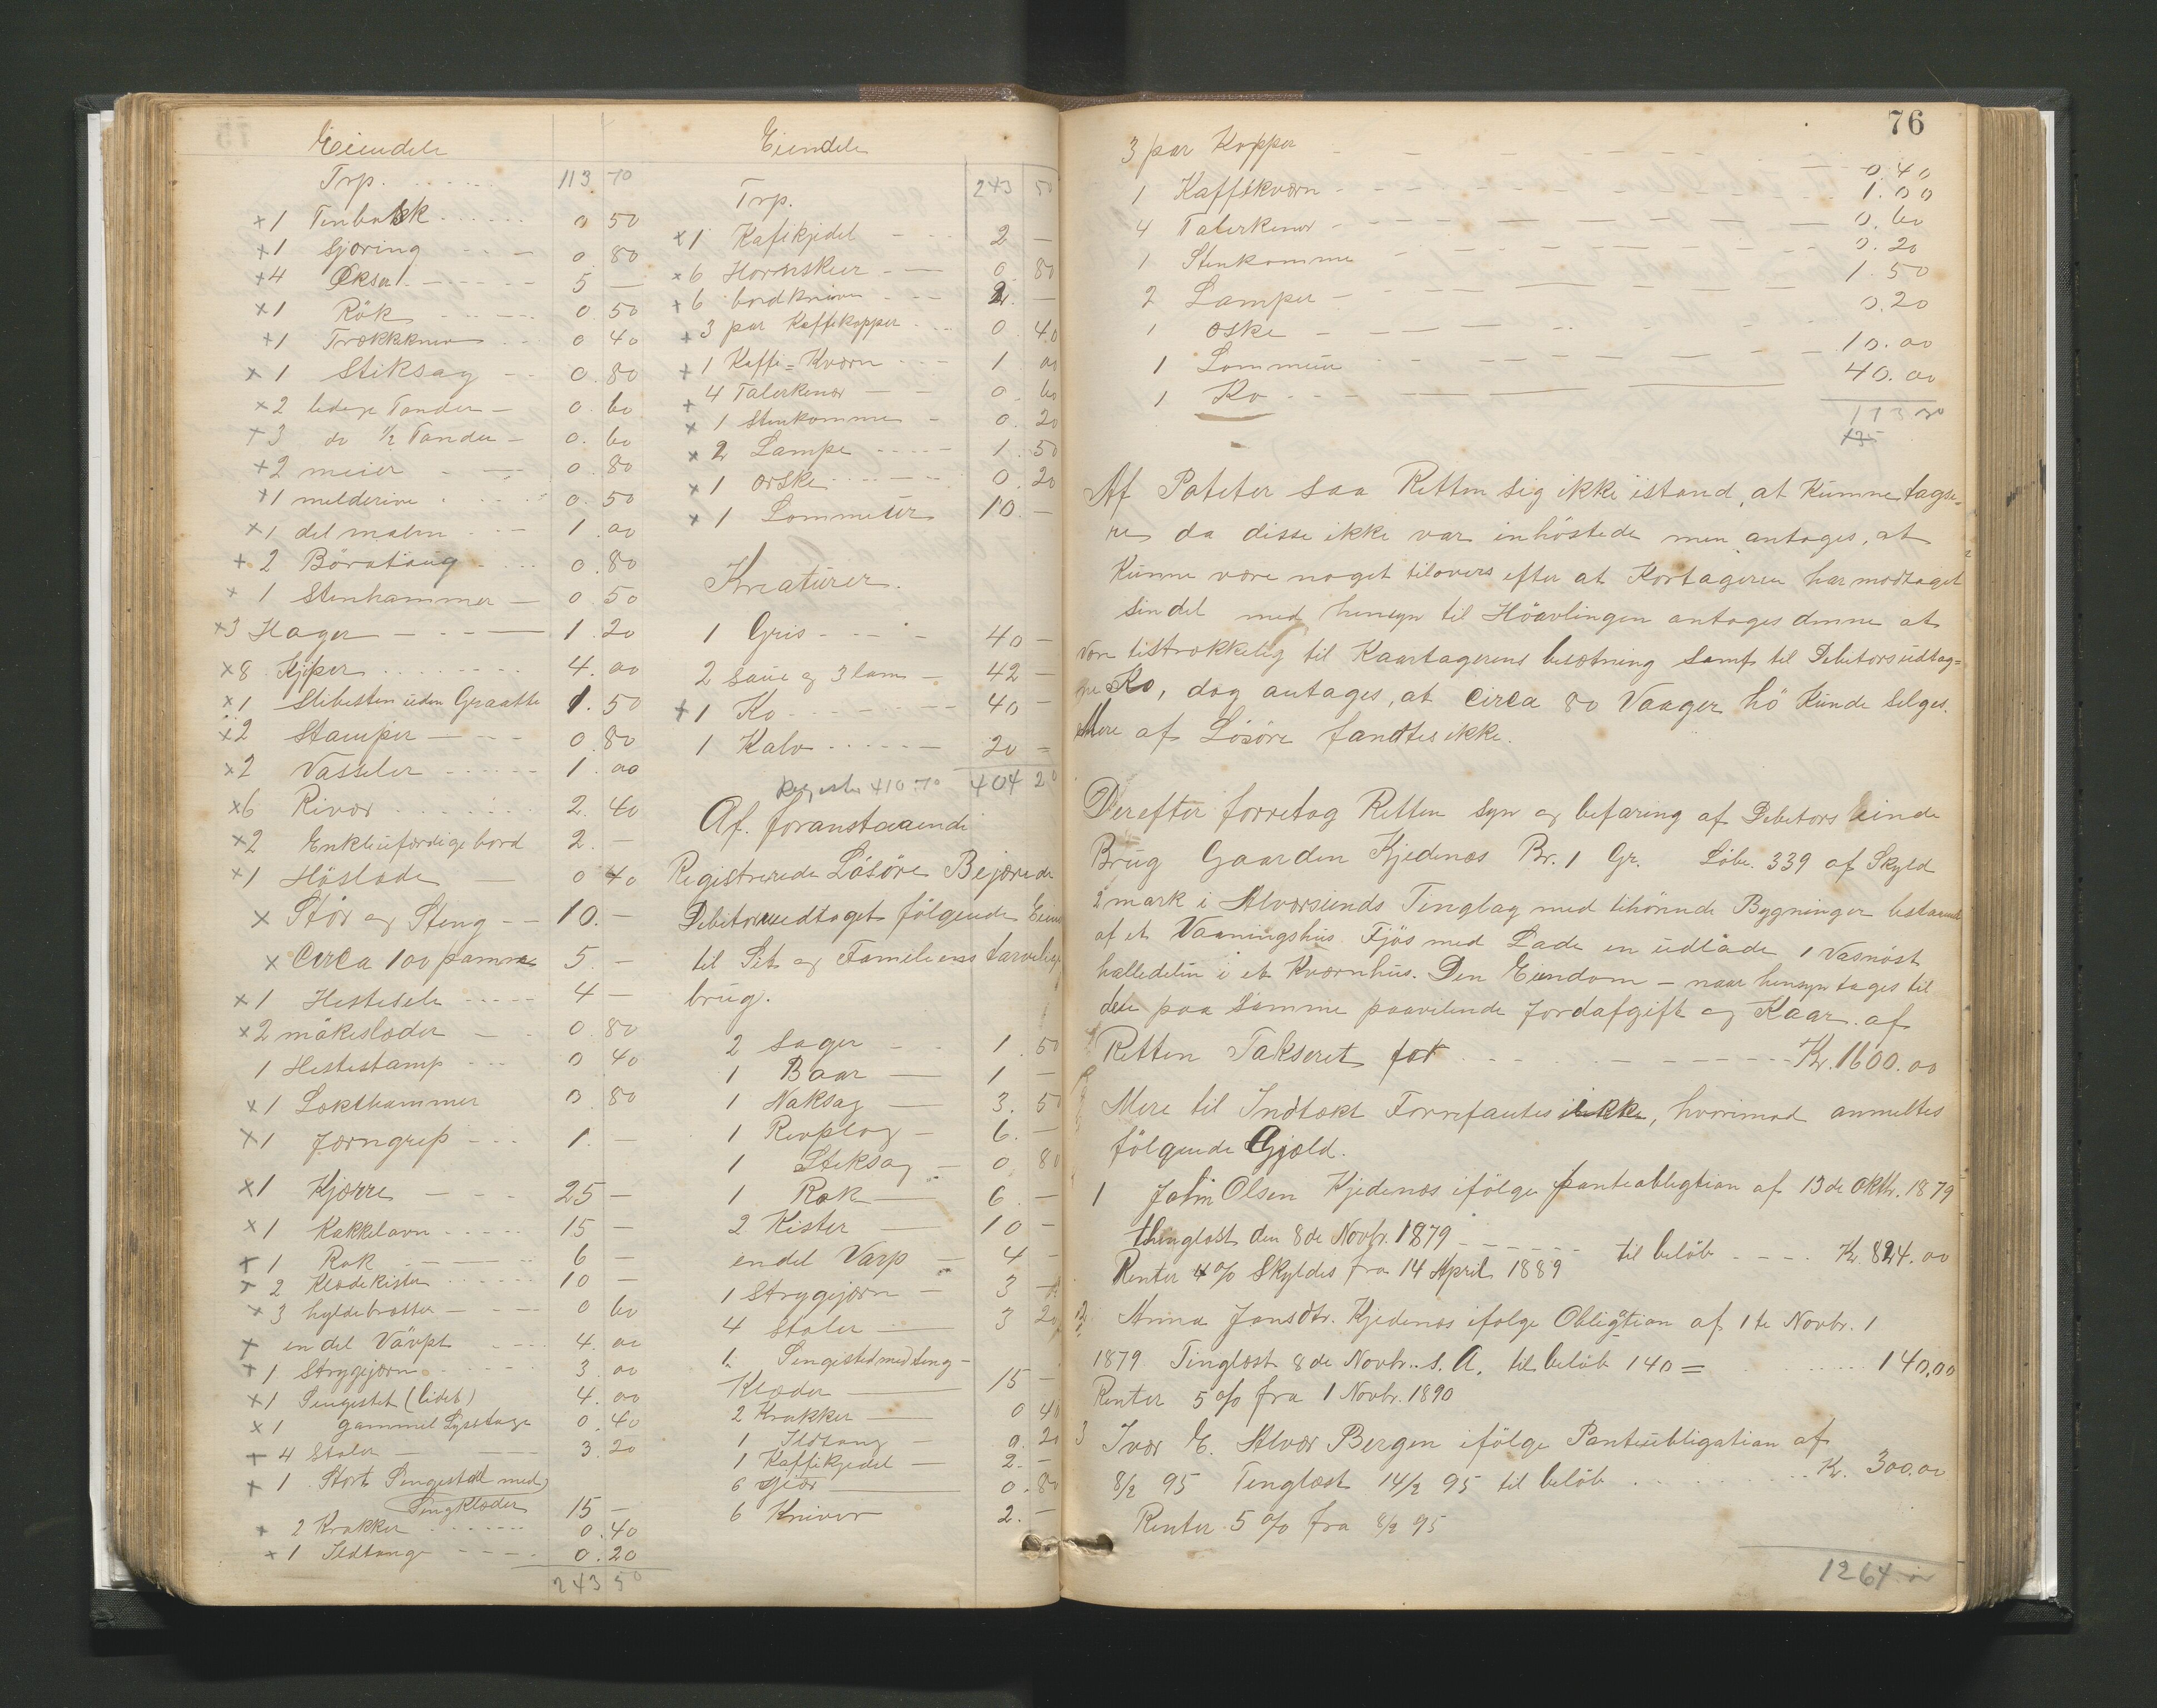 Eiendele
Trp. 113 70
+1 Tinbalsk 0 50
+1 Gjøring 0. 80
+4 Økser 5 —
×1 Rök 0. 50
+1 Trækkkniv 0 40
×1 Stiksag 0. 80
×2 ledige Tønder 0. 60
+3 do ½ Tønder 0. 60
+2 meier 0. 80
+1 melderive 0. 50
×1 del malm 1. 00
+2 Böratöüg 0. 80
×1 Stenhammer 0. 50
×3 Hager 1. 20
×8 Kjiper 4. 00
×1 Slibesten uden Graatte 1. 50
×2 Stamper 0. 80
×2 Vasseler 1. 00
×6 Rivor 2. 40
×2 Enkle ufærdige bord 2. —
×1 Höslæde 0 40
× Stör og Steng 10. —
× Circa 100 pamme 5. —
×1 Hestesele 4 —
×2 mökeslæder 0. 80
1 Hestestamp 0 40
×1 Lokthammer 0. 80
×1 Jærngrep 1. —
×1 Kjærre 25 —
×1 Kakkelovn 15 —
+1 Rok 6 —
+2 Klædekister 10 —
×3 hyldebrætter 0 60
+ en del Värpt 4. 00
+1 Strygejærn 3 00
×1 Sengested (lidet) 4. 00
×1 gammel Lysetage 0. 40
+4 Stoler 3. 20
+1 Stort Sengested med
Sengklæder 15 —
×2 Krakker 0. 40
+1 Ildtang 0. 20
243 50
Eiendele
Trp. 243 50
×1 Kafikjedel 2 —
×6 Hornskeer 0. 80
+6 bordkniver 2. —
+3 par Kaffekopper 0. 40
+1 Kaffe=Kværn 1 00
+4 Talerkener 0. 60
×1 Stenkomme 0. 20
×2 Lampe 1. 50
×1 ørske 0. 20
×1 Lommeür 10. —
Kreatürer.
1 Gris 40 —
2 Saue og 3 lam 42 —
+1 Ko 40 —
1 Kalv 20 =
Register 410.70 404 20
Af. foranstaaende
Registrerede Lösöre Begjærede
Debitor uedtaget fölgende Eien
til Sit og Familiens tarvelige
brüg.
2 Sager 1. 50
1 Baar 1 —
1 Naksag 3. 50
1 Revplog 6. —
1 Stiksag 0. 80
1 Rok 6. —
2 Kister 10 —
endel Varp 4 —
1 Strygejærn 3 —
4 Stoler 3 20
1 Sengested med Seng-
Klæder 15 —
2 Krakker 0 40
1 Ildtang 0. 20
1 Kaffikjedel 2. —
6 Skeer 0. 80
6 Kniver 2. —
76
3 par Kopper 0.40
1 Kaffekværn 1.00
4 Talerkener 0.60
1 Stenkomme 0.20
2 Lamper 1.50
1 øske 0.20
1 Lommeür 10.00
1 Ko 40.00
113 20
135
Af Poteter saa Retten sig ikke istand, at kunne tagse-
re da disse ikke var inhöstede men antages, at
kunne være noget tilovers efter at Kortageren har modtaget
sin del med hensyn til Höavlingen antages denne at
være tistrækkelig til Kaartagerens besætning samt til Debitors üdtag=
ne Ko, dog antages, at Circa 80 Vaager hö kunde selges.
Mere af Lösöre fandtes ikke.
Derefter forretog Retten syn og befaring af Debitors Eiende
Brüg Gaarden Kjedenæs Br. 1 Gr. Löbe. 339 af Skyld
2 mark i Alversünds Tinglag med tihörende Bygninger bestaaende
af et Vaaningshüs Fjös med Lade en üdlade 1 Vasnöst
halledelen i et Kværnhüs. Den Eiendom - naar hensyn tages til
den paa samme paavilende Jordafgift og Kaar af
Retten Takseret for Kr. 1600.00
Mere til Indtækt Forrefantes ikke, hvorimod anmeltes
fölgende Gjæld.
1 John Olsen Kjedenæs ifölge panteobligtion af 13de Oktbr. 1879
thinglæst den 8de Novbr. 1879 til belöb Kr. 824.00
Renter 4% Skyldes fra 14 April 1889
2 Anna Jonsdtr. Kjedenæs ifølge Obligtion af 1te Novbr. 1
1879 Tinglæst 8de Novbr. s. A. til belöb 140= 140,00
Renter 5% fra 1 Novbr. 1890
3 Ivar E. Alvær Bergen ifölge Panteobligation af
8/2 95 Tinglæst 14/2 95 til belöb Kr. 300.00
Renter 5% fra 8/2 95
1264 00